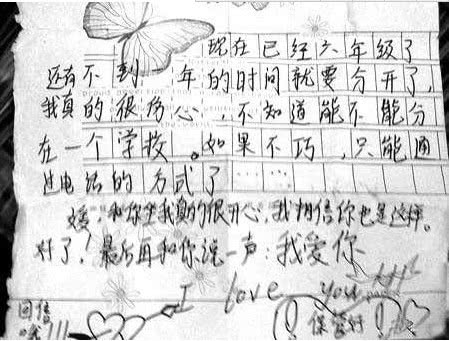 现在已经六年级了
还有不到一年的时间就要分开了,
我真的很伤心,不知道能不能分
在一个学校。如果不巧,只能通
过电话的方式了……
媛:和你坐我真的很开心,我相信你也是这样。
对了!最后再和你说一声:我爱你
I love you
回信 保管好
哦!!!